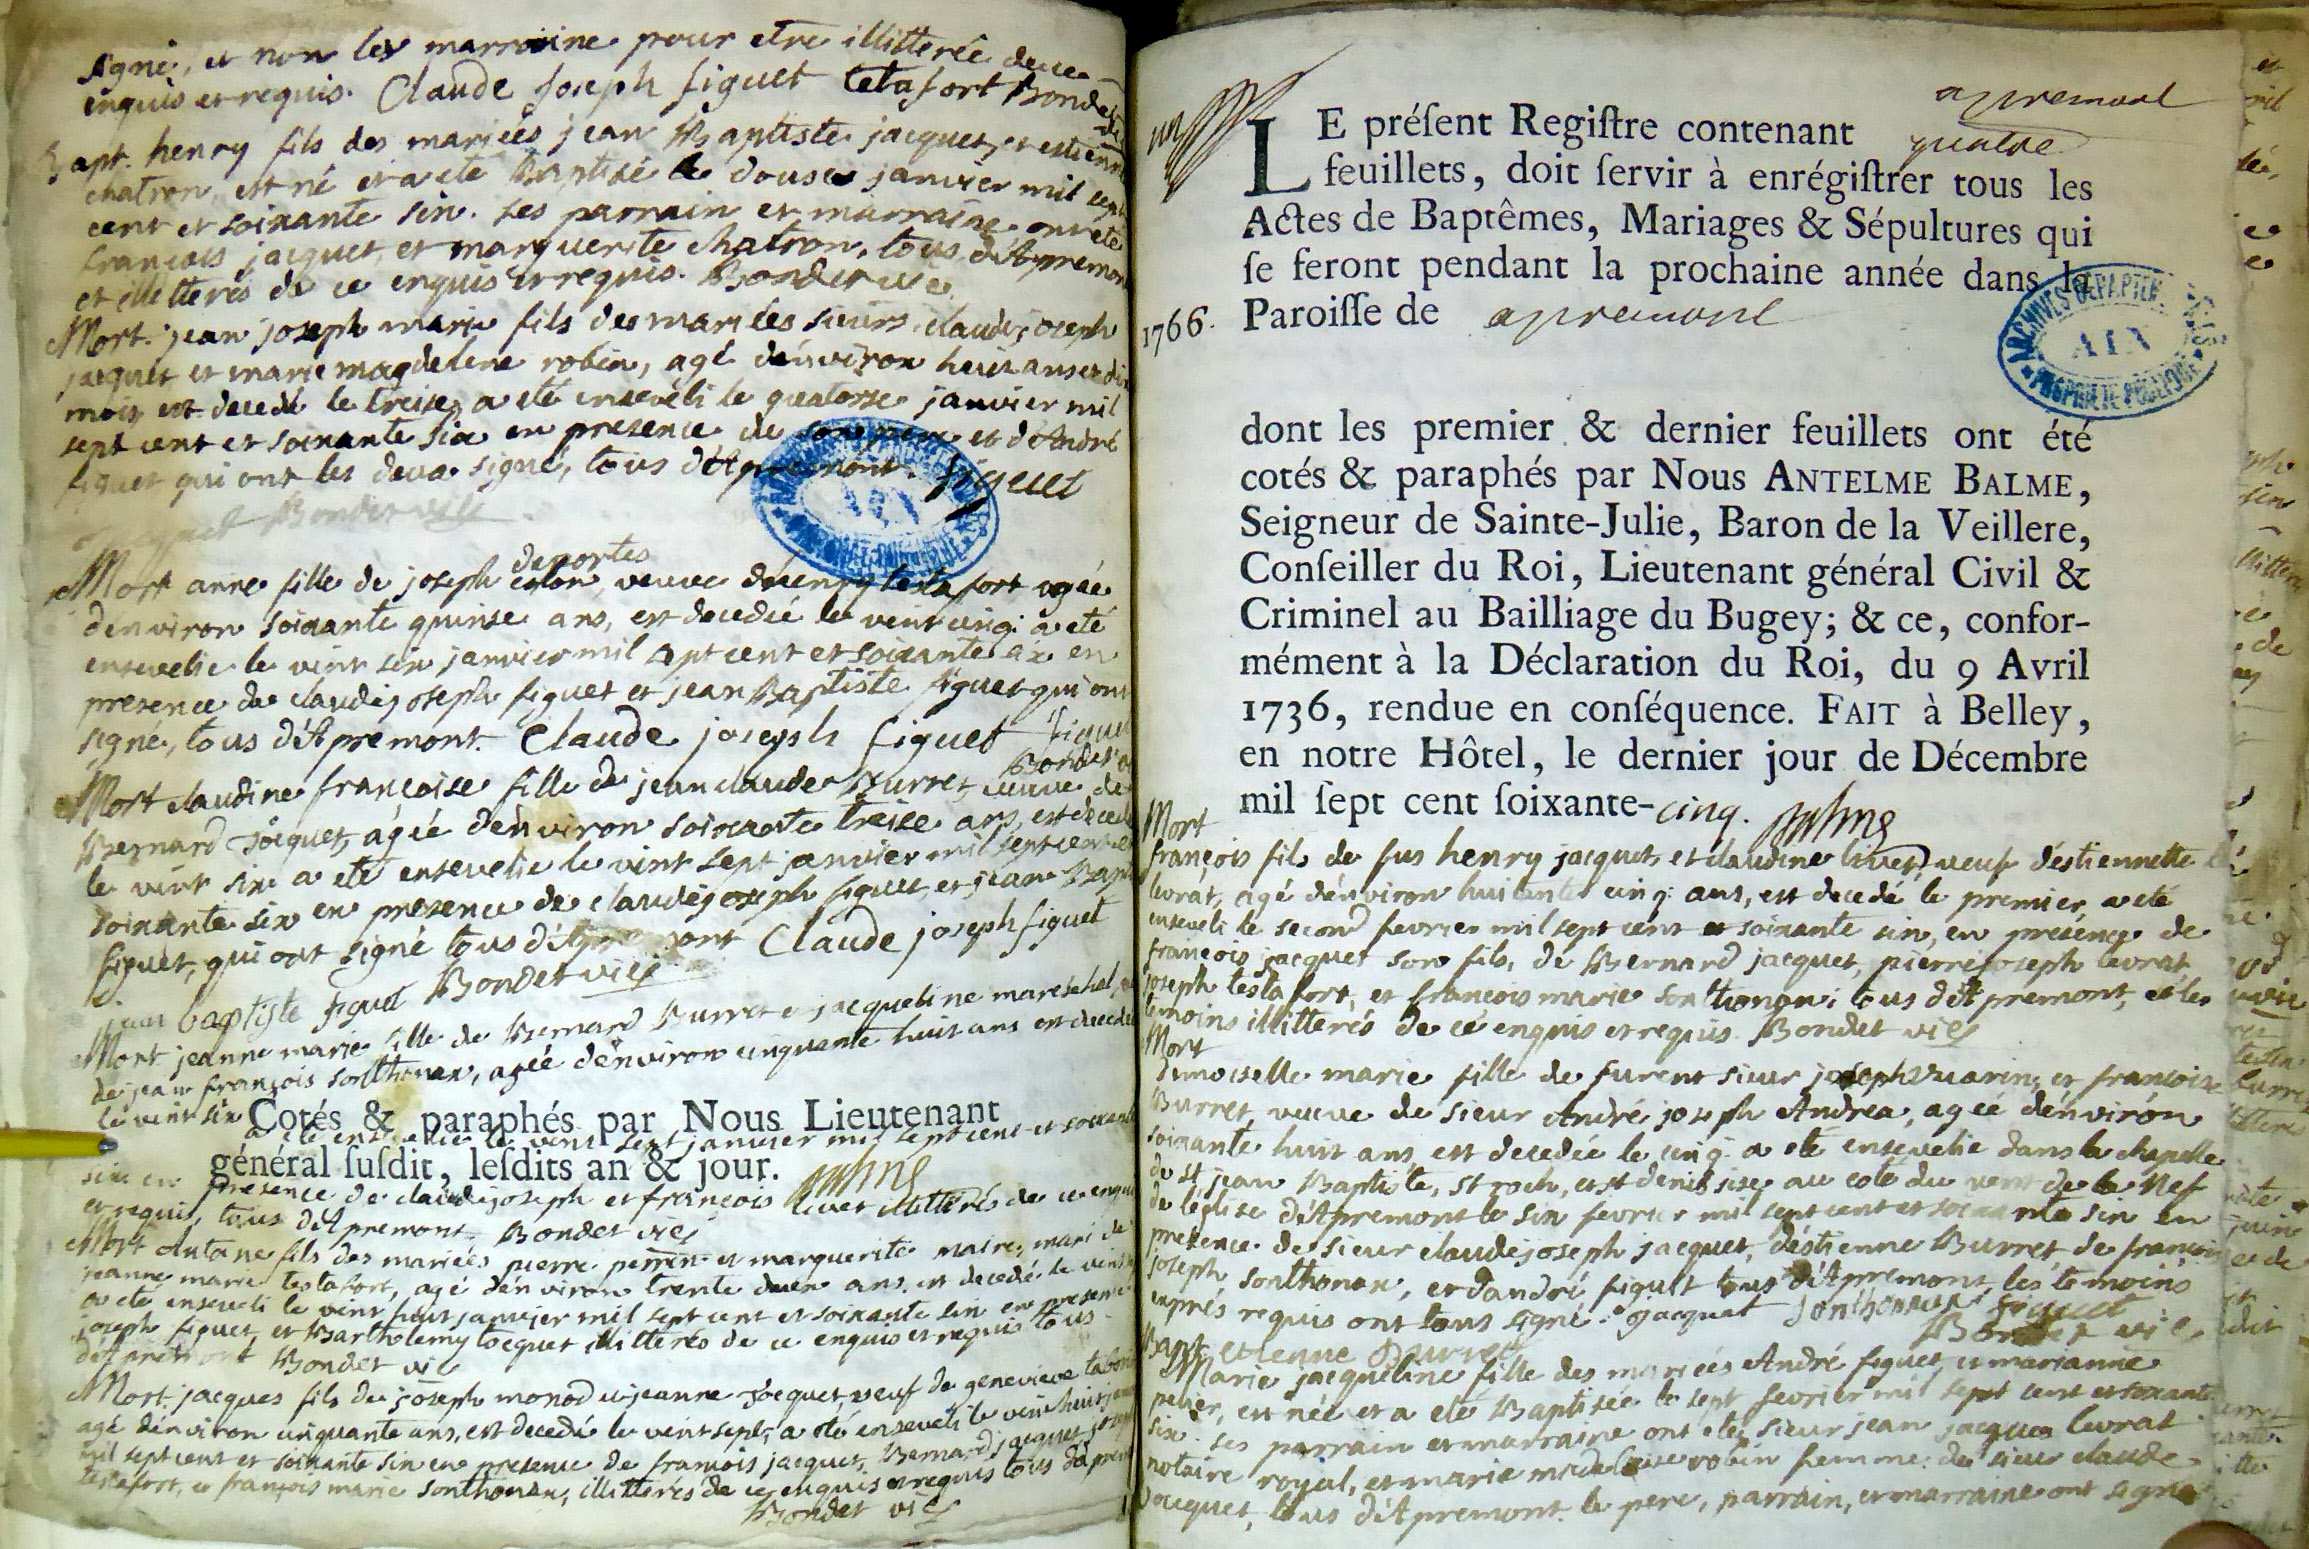 signé, et non les marroine pour etre illitterée de ce
enquis et requis. Claude Joseph figuet testafort Bondet
Bapt. henry fils des mariées jean Baptiste jacquet, et estienne
chatron, est né et a eté Baptisé le douse janvier mil sept
cent et soixante six. ses parrain et marraine ont eté
francois jacquet, et marguerite chatron, tous d'Apremon
et illitterés de ce enquis et requis. Bondet vic
Mort. jean joseph marie fils des mariées sieurs claude joseph
jacquet et marie magdelene robin, agé d'environ huit ans et dix
mois est decedé le treise, a eté enseveli le quatorse janvier mil
sept cent et soixante six en presence de son pere et d'André
figuet qui ont les deux signé, tous d'Apremont. figuet
Bondet vic
deportes
Mort anne fille de joseph veuve d'henry testafort agée
d'environ soixante quinse ans, est decedée le vint cinq: a eté
ensevelie le vint six janvier mil sept cent et soixante six en
presence de claude joseph figuet et jean Baptiste figuet qui ont
signé, tous d'Apremont. Claude joseph figuet figuet
Bondet
Mort claudine françoise fille de jean claude Burret, veuve de
Bernard Jocquet, agée d'environ soixante treise ans, est decedée
le vint six a eté ensevelie le vint sept janvier mil sept cent et
soixante six en presence de claude joseph figuet, et jean Bapt
figuet, qui ont signé tous d'Apremont Claude joseph figuet
jean baptiste figuet Bondet vic
Mort jeanne marie fille de Bernard Burret et jacqueline mareschal,
de jean françois Sonthonax, agée d'environ cinquante huit ans est decedée
le vint six
Cotés & paraphés par Nous Lieutenant
a eté ensevelie le vint sept janvier mil sept cent et soixante
général susdit, lesdits an & jour.
six en presence de claude joseph et francois livet illitterés de ce enquis
et requis, tous d'Apremont. Bondet vic
Mort Antoine fils des mariées pierre perrin et marguerite maire, mari de
jeanne marie testafort, agé d'environ trente deux ans est decedé le vint
a eté enseveli le vint huit janvier mil sept cent et soixante six en presence
joseph figuet, et Bartholemy Jocquet illitterés de ce enquis et requis tous
d'Apremont Bondet vic
Mort. jacques fils de joseph monod et jeanne Jocquet, veuf de genevieve
agé d'environ cinquante ans, est decedé le vint sept, a eté enseveli le vint huit
mil sept cent et soixante six en presence de francois jacquet, Bernard jacquet, joseph
testafort, et françois marie Sonthonax, illitterés de ce enquis et requis tous d'Apremont
Bondet vic
apremont
LE présent Registre contenant quatre
feuillets, doit servir à enrégistrer tous les
Actes de Baptêmes, Mariages & Sépultures qui
se feront pendant la prochaine année dans la
1766. Paroisse de apremont
ARCHIVES DEPARTEMENTALES
AIN
PROPRIETE PUBLIQUE
dont les premier & dernier feuillets ont été
cotés & paraphés par Nous ANTELME BALME,
Seigneur de Sainte-Julie, Baron de la Veillere,
Conseiller du Roi, Lieutenant général Civil &
Criminel au Bailliage du Bugey; & ce, confor-
mément à la Déclaration du Roi, du 9 Avril
1736, rendue en conséquence. FAIT à Belley,
en notre Hôtel, le dernier jour de Décembre
mil sept cent soixante-cinq.
Mort
françois fils de fus henry jacquet, et claudine livet, veuf d'estiennette
levrat, agé d'environ huitante cinq: ans, est decedé le premier a eté
enseveli le second fevrier mil sept cent et soixante six, en présence de
francois jacquet son fils, de Bernard jacquet, pierre joseph levrat
joseph testafort, et francois marie Sonthonax; tous d'Apremont, et les
temoins illitterés de cé enquis et requis. Bondet vic
Mort
demoiselle marie fille de furent sieur joseph vuarin, et francoise
Burret, veuve de sieur André joseph Andrea, agée d'environ
soixante huit ans est decedée le cinq: a eté ensevelie dans la chapelle
de st jean Baptiste, st roch, et st denis sise au coté du vent de la Nef
de l'église d'Apremont le six fevrier mil sept cent et soixante six en
presence de sieur claude joseph jacquet, d'éstienne Burret, de francois
joseph Sonthonax, et d'andré figuet tous d'Apremont, les temoins
enprés requis ont tous signé. jacquet Sonthonnax figuet
etienne Burret Bondet vic
Bapt.
Marie jacqueline fille des mariées André figuet, et marianne
pelier, est née et a eté Baptisée le sept fevrier mil sept cent et soixante
six. ses parrain et marraine ont eté sieur jean jacques levrat
notaire royal, et marie madelaine robin femme du sieur claude
jocquet, tous d'Apremont. le pere, parrain, et marraine ont signé